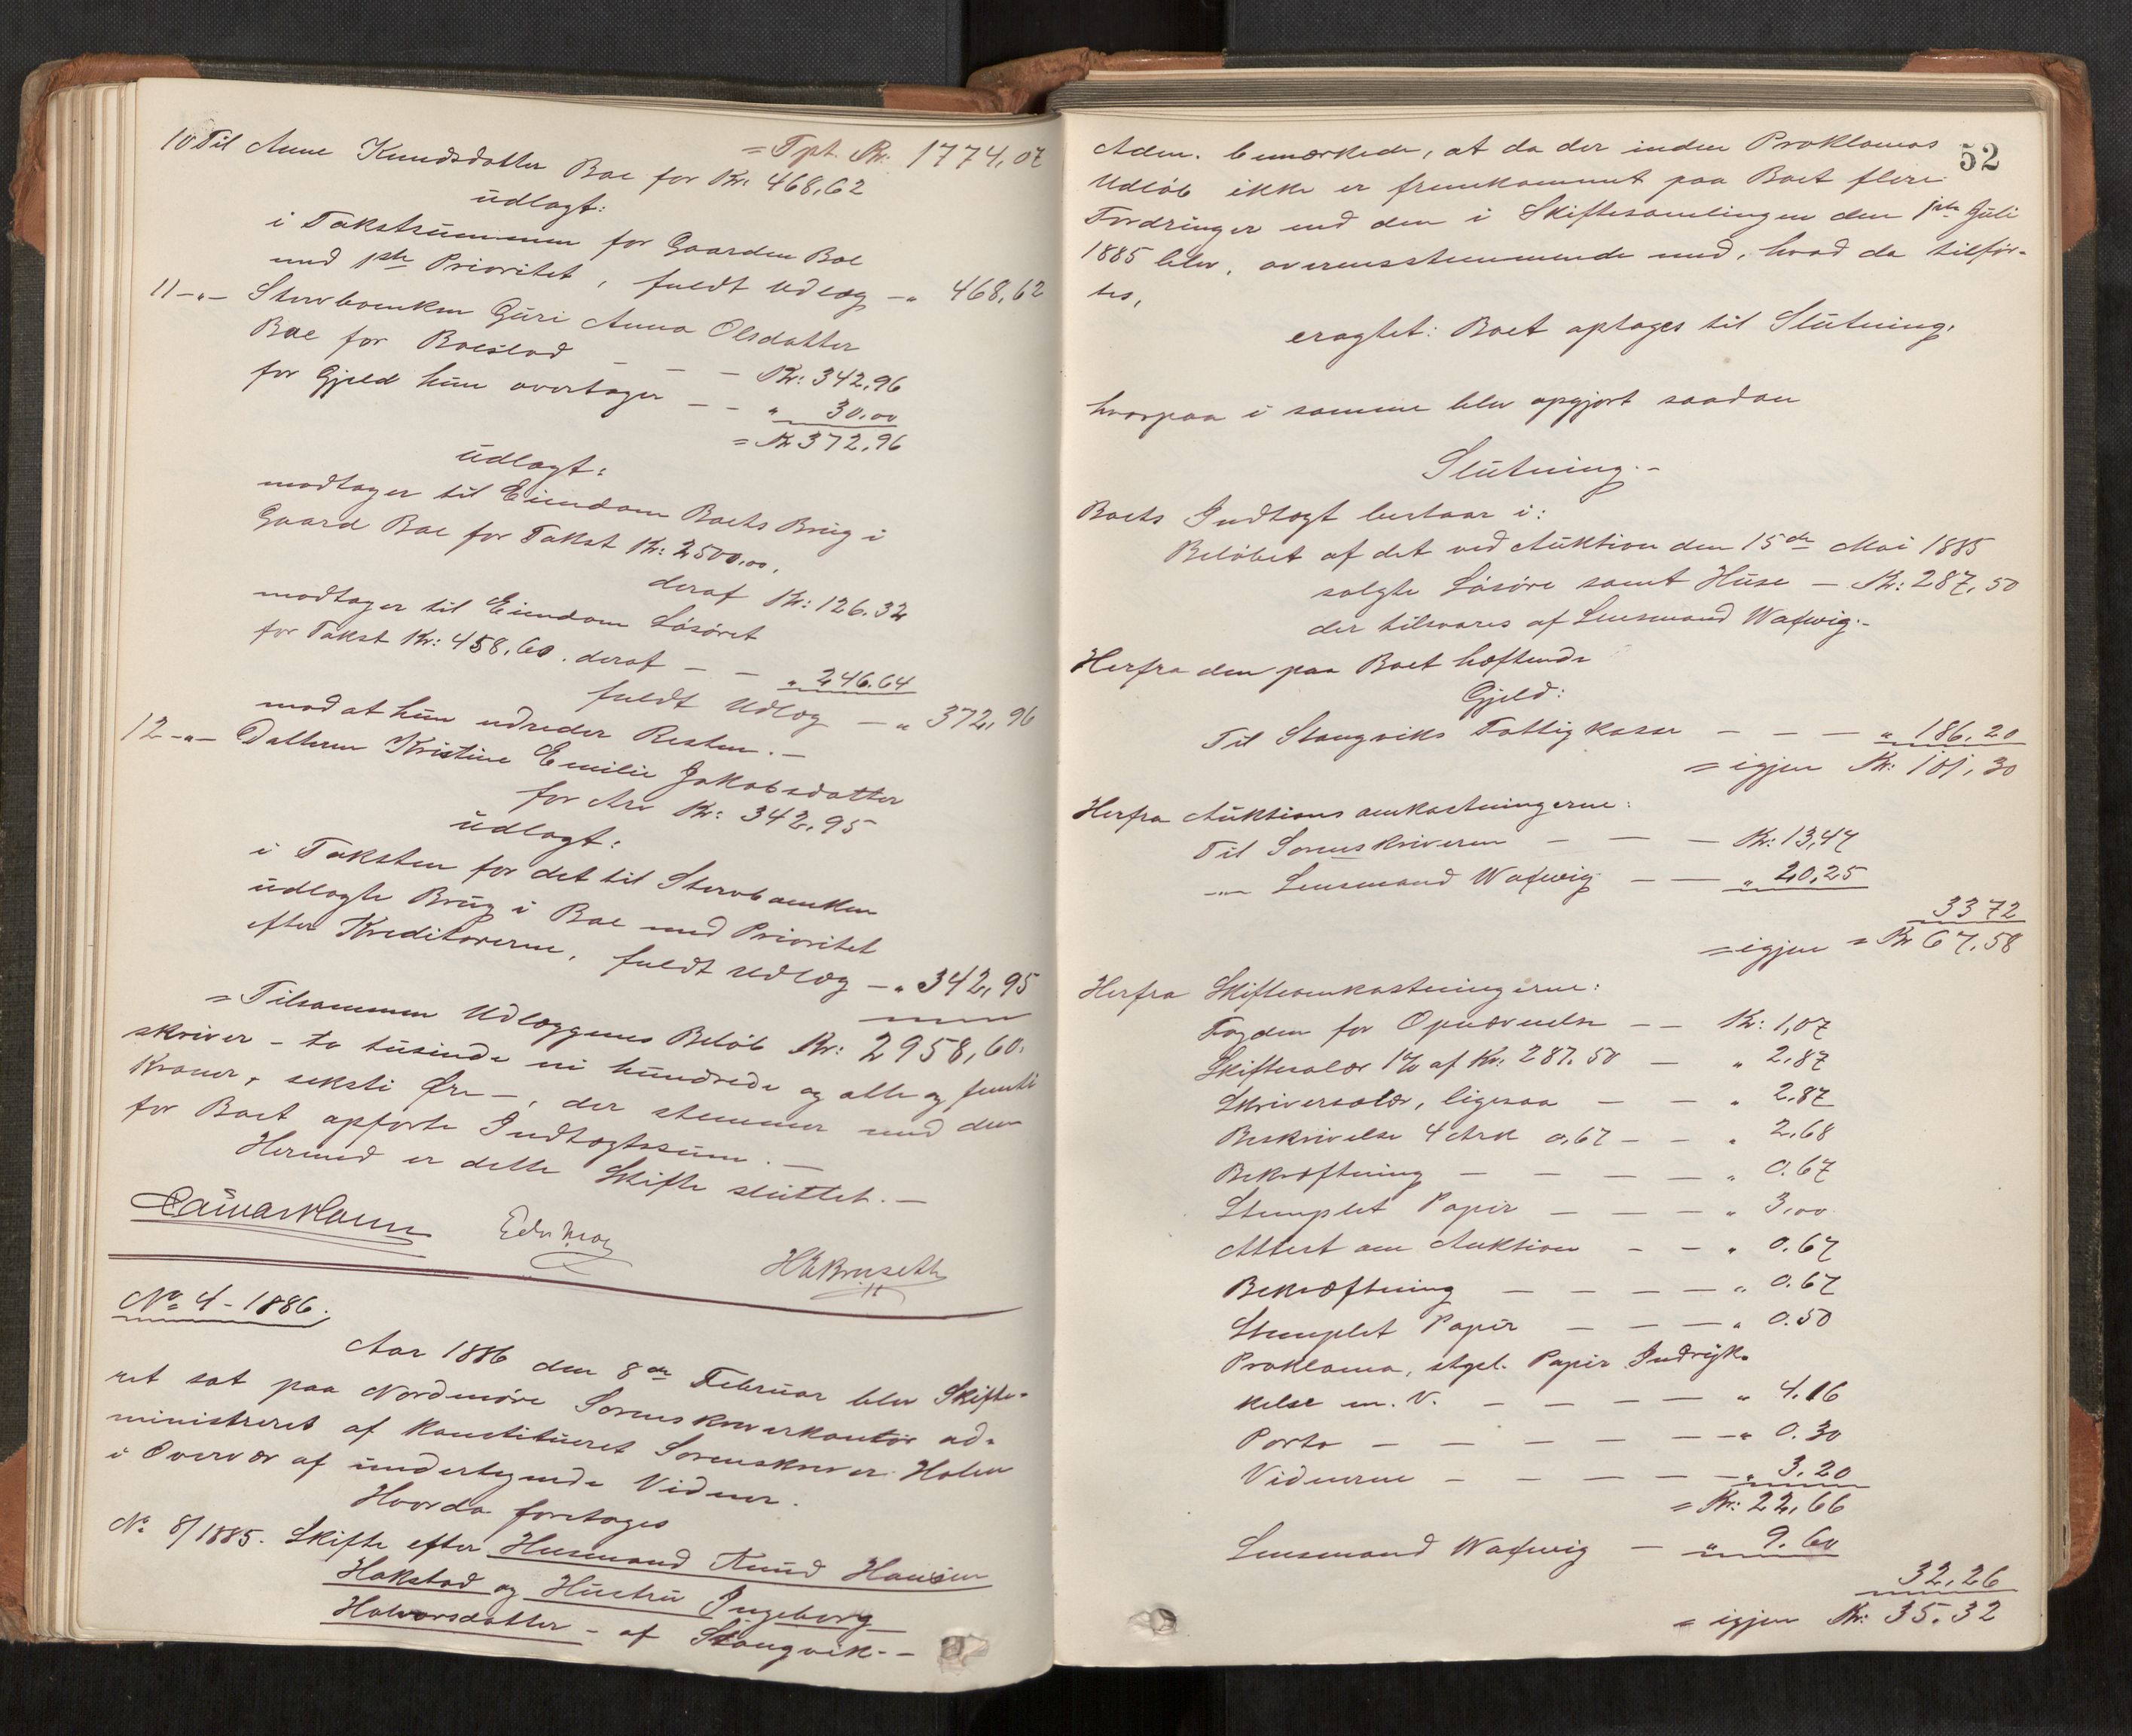 = Tpt. Kr. 1774,07
10 Til Anne Knudsdatter Boe for Kr. 468,62
udlagt:
i Takstsummen for Gaarden Boe
med 1ste Prioritet, fuldt Udlæg - " 468,62
11 -"- Stervboenken Guri Anna Olsdatter
Boe for Boeslod - - Kr: 342,96
for Gjeld hun overtager - - " 30,00
= Kr 372,96
udlagt:
modtager til Eiendom Boets Brug i
Gaard Boe for Takst Kr: 2500,00,
deraf Kr: 126.32
modtager til Eiendom Løsøret
for Takst Kr: 458,60. deraf - - " 246.64
fuldt Udlæg - " 372,96
mod at hun udreder Resten. -
12 -"- Datteren Kristine Emilie Jakobsdatter
for Arv Kr: 342,95
udlagt:
i Taksten for det til Stervboenken
udlagte Brug i Boe med Prioritet
efter Kreditorerne, fuldt Udlæg - " 342,95
= Tilsammen Udlæggenes Beløb Kr: 2958,60.
skriver - to tusinde ni hundrede og otte og femti
Kroner, seksti Øre -, der stemmer med den
for Boet opførte Indtægtssum. -
Hermed er dette Skifte sluttet. -
HKBruseth
No 4 - 1886.
Aar 1886 den 8de Februar blev Skifte-
ret sat paa Nordmøre Sorenskriverkontor ad-
ministreret af konstitueret Sorenskriver Holm
i Overvær af undertegnede Vidner.
Hvorda foretoges
No 8/1885. Skifte efter Husmand Knud Hansen
Hakstad og Hustru Ingeborg
Halvorsdatter - af Stangvik. -
52
Adm. bemærkede, at da der inden Proklamas
Udløb ikke er fremkommet paa Boet flere
Fordringer end den i Skiftesamlingen den 1ste Juli
1885 blev, overensstemmende med, hvad da tilfør-
tes,
eragtet: Boet optages til Slutning,
hvorpaa i samme blev opgjort saadan
Slutning. -
Boets Indtægt bestaar i:
Beløbet af det ved Auktion den 15de Mai 1885
solgte Løsøre samt Huse - Kr: 287,50
der tilsvares af Lensmand Waxwig. -
Herfra den paa Boet hæftende
Gjeld:
Til Stangviks Fattigkasse - - - " 186,20
= igjen Kr: 101,30
Herfra Auktionsomkostningerne:
Til Sorenskriveren - - - Kr: 13,47
-"- Lensmand Waxwig - - " 20,25
33 72
= igjen = Kr 67,58
Herfra Skifteomkostningerne:
Fogden for Opnævnelse - - Kr: 1,07
Skiftesalær 1% af Kr: 287.50 - " 2,87
Skriversalær, ligesaa - - " 2,87
Beskrivelse 4 Ark 0,67 - - " 2,68
Bekræftning - - - - " 0.67
Stemplet Papir - - - " 3,00
Attest om Auktion - - " 0.67
Bekræftning - - - - " 0.67
Stemplet Papir - - - " 0.50
Proklama, stpl. Papir Indryk-
kelse m. V. - - - - " 4.16
Porto - - - - - " 0.30
Vidnerne - - - - - " 3.20
= Kr: 22,66
Lensmand Waxwig - " 9.60
32,26
= igjen Kr: 35.32